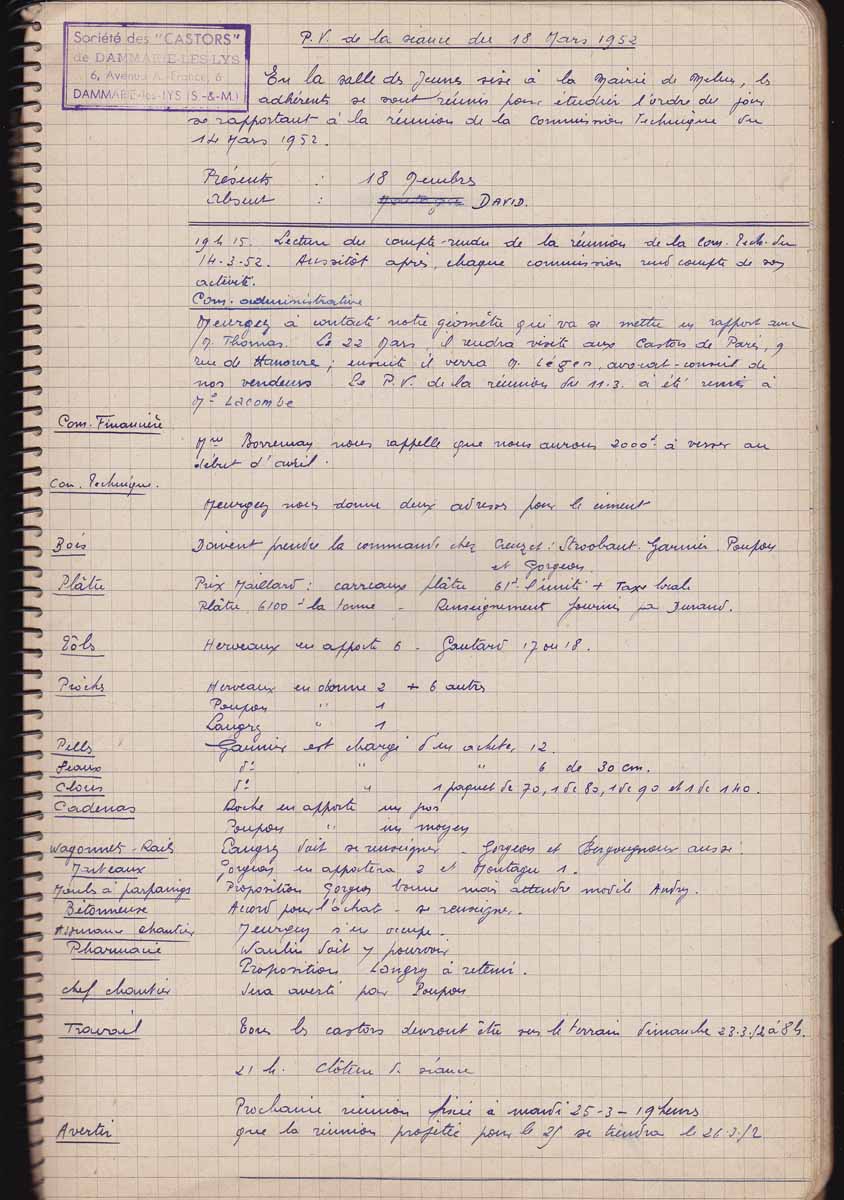 Société des "CASTORS"
de DAMMARIE-LES-LYS
6, Avenue A. France, 6
DAMMARIE-les-LYS (S.-&-M.)
P.V. de la séance du 18 Mars 1952
En la salle des Jeunes sise à la Mairie de Melun, les
adhérents se sont réunis pour étudier l'ordre du jour
se rapportant à la réunion de la Commission Technique du
14 Mars 1952.
Présents : 18 Membres
Absent : DAVID.
19h15. Lecture du compte-rendu de la réunion de la Com. Tech. du
14-3-52. Aussitôt après, chaque commission rend compte de son
activité.
Com. administrative
Meurgey à contacté notre géomètre qui va se mettre en rapport avec
M. Thomas. Le 22 Mars, il rendra visite aux Castors de Paris, 9
rue de Hanovre ; ensuite il verra M. Léger, avocat-conseil de
nos vendeurs. Le P.V. de la réunion du 11.3. a été remis à
Me Lacombe
Com. Financière
Mme Borremay nous rappelle que nous aurons 2000f à verser au
début d'avril.
Com. Technique.
Meurgey nous donne deux adresses pour le ciment
Bois Doivent prendre la commande chez Creuzet : Stroobant. Garnier. Poupon
et Gorgeon.
Plâtre Prix Maillard : carreaux plâtre 61f l'unité + Taxe locale
Plâtre 6100f la tonne - Renseignement fournis par Durand.
Tôles Herveaux en apporte 6 - Goutard 17 ou 18.
Pioches Herveaux en donne 2 + 6 autres
Poupon " 1
Langry " 1
Pelles Garnier est chargé d'en acheter 12.
Seaux d° " " 6 de 30 cm.
Clous d° " 1 paquet de 70, 1 de 80, 1 de 90 et 1 de 140.
Cadenas Roche en apporte un gros
Poupon " un moyen
Wagonnets-Rails Langry doit se renseigner - Gorgeon et Bergougnoux aussi
Marteaux Gorgeon en apportera 2 et Montagu 1.
Moules à parpaings Proposition Gorgeon bonne mais attendre modèle Andry.
Bétonneuse Accord pour l'achat - se renseigner.
Assurance chantier Meurgey s'en occupe.
Pharmacie Naulin doit y pourvoir
Proposition Langry à retenir.
Chef chantier Sera averti par Poupon
Travail Tous les castors devront être sur le terrain dimanche 23.3.52 à 8h.
21 h. Clôture de séance
Prochaine réunion fixée à mardi 25-3 - 19 heures
Avertir que la réunion projetée pour le 25 se tiendra le 26.3.52